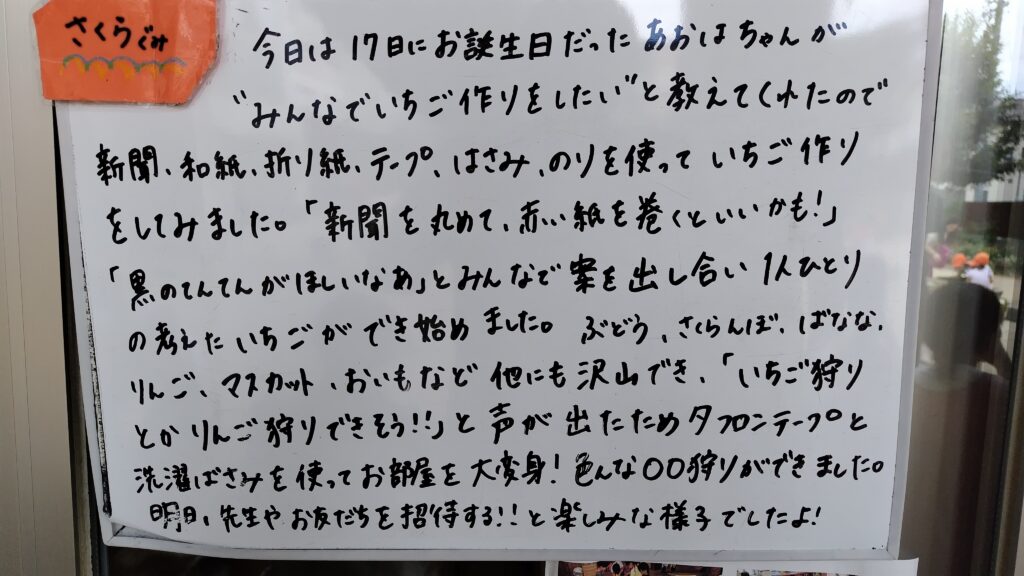 さくらぐみ
今日は17日にお誕生日だったあおはちゃんが
"みんなでいちご作りをしたい"と教えてくれたので
新聞、和紙、折り紙、テープ、はさみ、のりを使っていちご作り
をしてみました。「新聞を丸めて、赤い紙を巻くといいかも!」
「黒のてんてんがほしいなあ」とみんなで案を出し合い1人ひとり
の考えたいちごができ始めました。ぶどう、さくらんぼ、ばなな、
りんご、マスカット、おいもなど他にも沢山でき、「いちご狩り
とかりんご狩りできそう!!」と声が出たためタフロンテープと
洗濯ばさみを使ってお部屋を大変身!色んな〇〇狩りができました。
明日、先生やお友だちを招待する!!と楽しみな様子でしたよ!